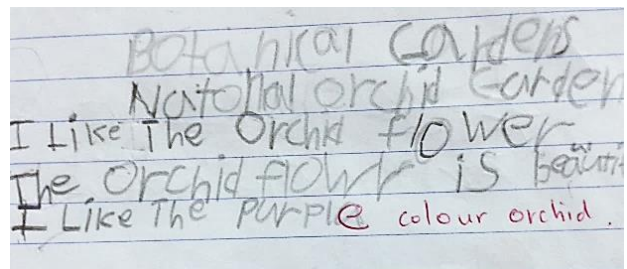 Botanical Gardens
Natonal orchid Garden
I Like The Orchid flower
The Orchid flowr is beauti
I Like The purple colour orchid.